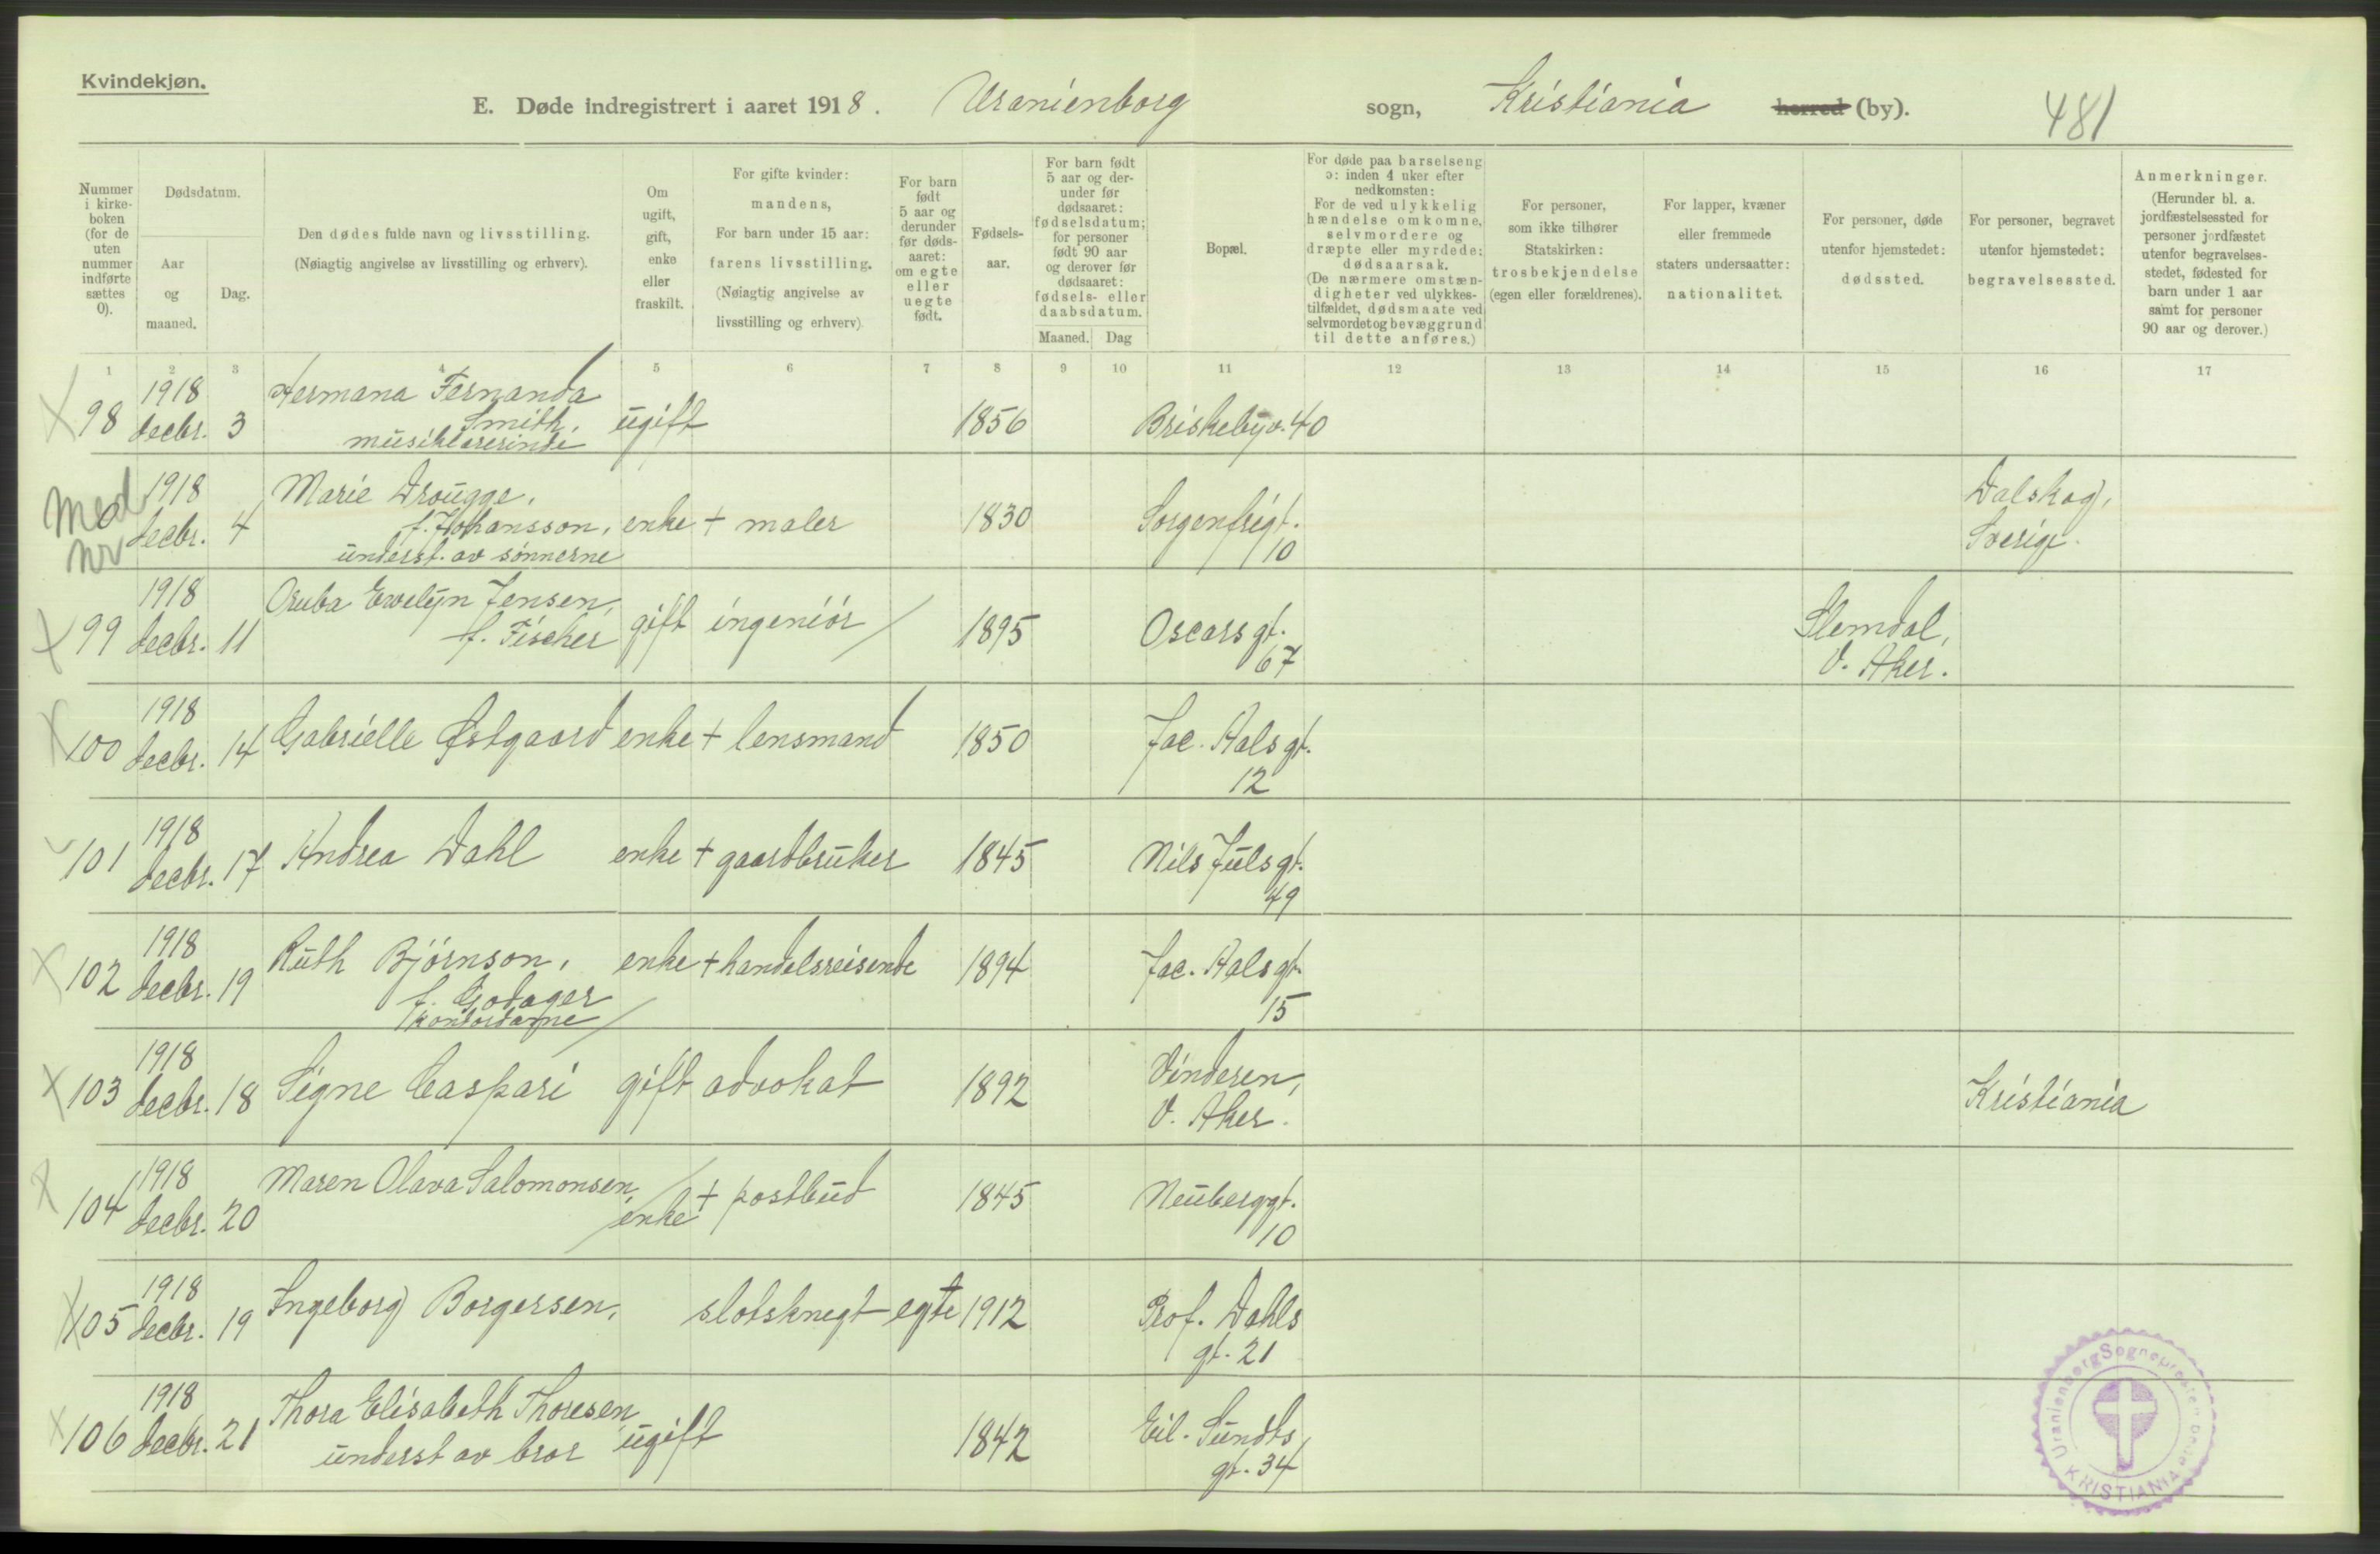 Kvindekjøn.
E. Døde indregistrert i aaret 1918. Uranienborg sogn, Kristiania herred (by). 481
Nummer i kirke-boken (for de uten nummer indførte sættes 0).
Dødsdatum.
Aar og maaned.
Dag.
Den dødes fulde navn og livsstilling.
(Nøiagtig angivelse av livsstilling og erhverv).
Om ugift, gift, enke eller fraskilt.
For gifte kvinder: mandens,
For barn under 15 aar: farens livsstilling.
(Nøiagtig angivelse av livsstilling og erhverv)
For barn født 5 aar og derunder før døds-aaret: om egte eller uegte født.
Fødsels-aar.
For barn født 5 aar og der-under før dødsaaret: fødselsdatum; for personer født 90 aar og derover før dødsaaret: fødsels- eller daabsdatum.
Maaned. Dag
Bopæl.
For døde paa barselseng ɔ: inden 4 uker efter nedkomsten:
For de ved ulykkelig hændelse omkomne, selvmordere og dræpte eller myrdede: dødsaarsak.
(De nærmere omstæn-digheter ved ulykkes-tilfældet, dødsmaate ved selvmordet og bevæggrund til dette anføres.)
For personer, som ikke tilhører Statskirken: trosbekjendelse (egen eller forældrenes).
For lapper, kvæner eller fremmede staters undersaatter: nationalitet.
For personer, døde utenfor hjemstedet: dødssted.
For personer, begravet utenfor hjemstedet: begravelsessted.
Anmerkninger.
(Herunder bl. a. jordfæstelsessted for personer jordfæstet utenfor begravelses-stedet, fødested for barn under 1 aar samt for personer 90 aar og derover.)
1 2 3 4 5 6 7 8 9 10 11 12 13 14 15 16 17
1918 Hermana Fernanda
98 decbr. 3 Smith, ugift 1856 Briskebyv. 40
musiklærerinde
Med 1918 Marie Drougge, Dalskog,
0 decbr. 4 f. Johansson, enke + maler 1830 Sorgenfrigt. Sverige.
nr underst. av sønnerne 10
1918 Oruba Ewelyn Jensen,
99 decbr. 11 f. Fischer gift ingeniør 1895 Oscars gt. Slemdal,
67 V. Aker.
1918
100 decbr. 14 Gabrielle Østgaard enke + lensmand 1850 Jac. Aals gt.
12
1918
101 decbr. 17 Andrea Dahl enke + gaardbruker 1845 Nils Juls gt.
49
1918
102 decbr. 19 Ruth Bjørnson, enke + handelsreisende 1894 Jac. Aals gt.
f. Godager 15
kontordame
1918
103 decbr. 18 Signe Caspari gift advokat 1892 Vinderen, Kristiania
V. Aker.
1918 Maren Olava Salomonsen,
104 decbr. 20 enke + postbud 1845 Neuberggt.
10
1918
105 decbr. 19 Ingeborg Borgersen, slotsknegt egte 1912 Prof. Dahls
gt. 21
1918 Thora Elisabeth Thoresen,
106 decbr. 21 underst av bror ugift 1842 Eil. Sundts
gt. 34
Uranienborg Sogneprest
KRISTIANIA